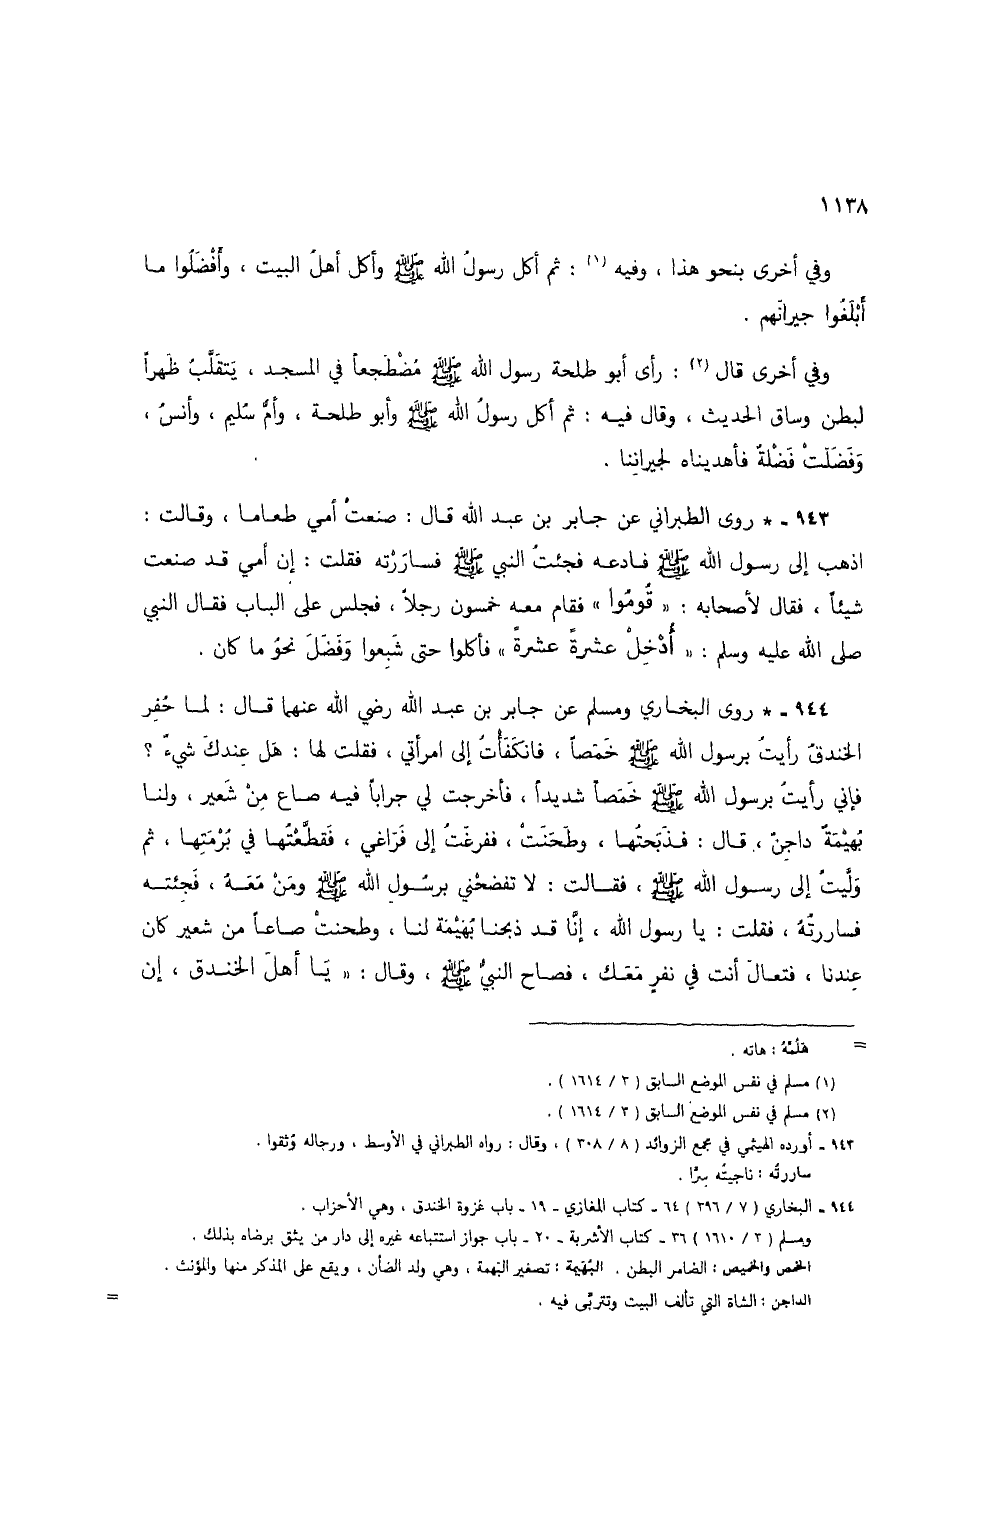 ١١٣٨
وفي أخرى بنحو هذا ، وفيه (١) : ثم أكل رسولُ الله ﷺ وأكل أهلُ البيت ، وأَفْضَلُوا ما
أَبْلَغُوا جيرانَهم .
وفي أخرى قال (٢) : رأى أبو طلحة رسول الله ﷺ مُضْطَجعاً في المسجد ، يَتقَلَّبُ ظَهراً
لبطن وساق الحديث ، وقال فيه : ثم أكل رسولُ الله ﷺ وأبو طلحة ، وأمُّ سُليم ، وأنسُ ،
وَفَضَلَتْ فَضْلةٌ فأهديناه لجيرانِنا .
٩٤٣ - * روى الطبراني عن جابر بن عبد الله قال : صنعتْ أمي طعاما ، وقالت :
اذهب إلى رسول الله ﷺ فادعه فجئتُ النبي ﷺ فسارَرْته فقلت : إن أمي قد صنعت
شيئاً ، فقال لأصحابه : « قُومُوا » فقام معه خمسون رجلاً ، فجلس على الباب فقال النبي
صلى الله عليه وسلم : « أُدْخِلْ عشرةً عشرةً » فأكلوا حتى شَبِعوا وَفَضَلَ نحوُ ما كان .
٩٤٤ - * روى البخاري ومسلم عن جابر بن عبد الله رضي الله عنهما قال : لما حُفِر
الخندقُ رأيتُ برسول الله ﷺ خَمَصاً ، فانكَفَأْتُ إلى امرأتي ، فقلت لها : هَل عِندكَ شيءٌ ؟
فإني رأيتُ برسول الله ﷺ خَمَصاً شديداً ، فأخرجت لي جراباً فيه صاع مِنْ شَعير ، ولنا
بُهَيْمَةٌ داجنٌ ، قال : فذَبَحتُها ، وطَحَنَتْ ، ففرغَتُ إلى فَرَاغي ، فَقطَّعْتُها في بُرْمَتِها ، ثم
وَلَّيتُ إلى رسول الله ﷺ ، فقالت : لا تفضحْني برسُول الله ﷺ ومَنْ مَعَهُ ، فَجئته
فساررتُهُ ، فقلت : يا رسول الله ، إنَّا قد ذبحنا بُهَيْمَة لنا ، وطحنتْ صاعاً من شعير كان
عِندنا ، فتعالَ أنت في نفرٍ مَعَك ، فصاح النبيُّ ﷺ ، وقال : « يَا أهلَ الخندق ، إن
= هَلُمَّهُ : هاته .
(١) مسلم في نفس الموضع السابق ( ٣ / ١٦١٤ ) .
(٢) مسلم في نفس الموضع السابق ( ٣ / ١٦١٤ ) .
٩٤٣ - أورده الهيثمي في مجمع الزوائد ( ٨ / ٣٠٨ ) ، وقال : رواه الطبراني في الأوسط ، ورجاله وُثقوا .
ساررتُه : ناجيتُه سِرّاً .
٩٤٤ - البخاري ( ٧ / ٣٩٦ ) ٦٤ - كتاب المغازي - ١٩ - باب غزوة الخندق ، وهي الأحزاب .
ومسلم ( ٣ / ١٦١٠ ) ٣٦ - كتاب الأشربة - ٢٠ - باب جواز استتباعه غيره إلى دار من يثق برضاه بذلك .
الخمص والخميص : الضامر البطن . البُهَيمة : تصغير البَهمة ، وهي ولد الضأن ، ويقع على المذكر منها والمؤنث .
الداجن : الشاة التي تألف البيت وتتربّى فيه . =